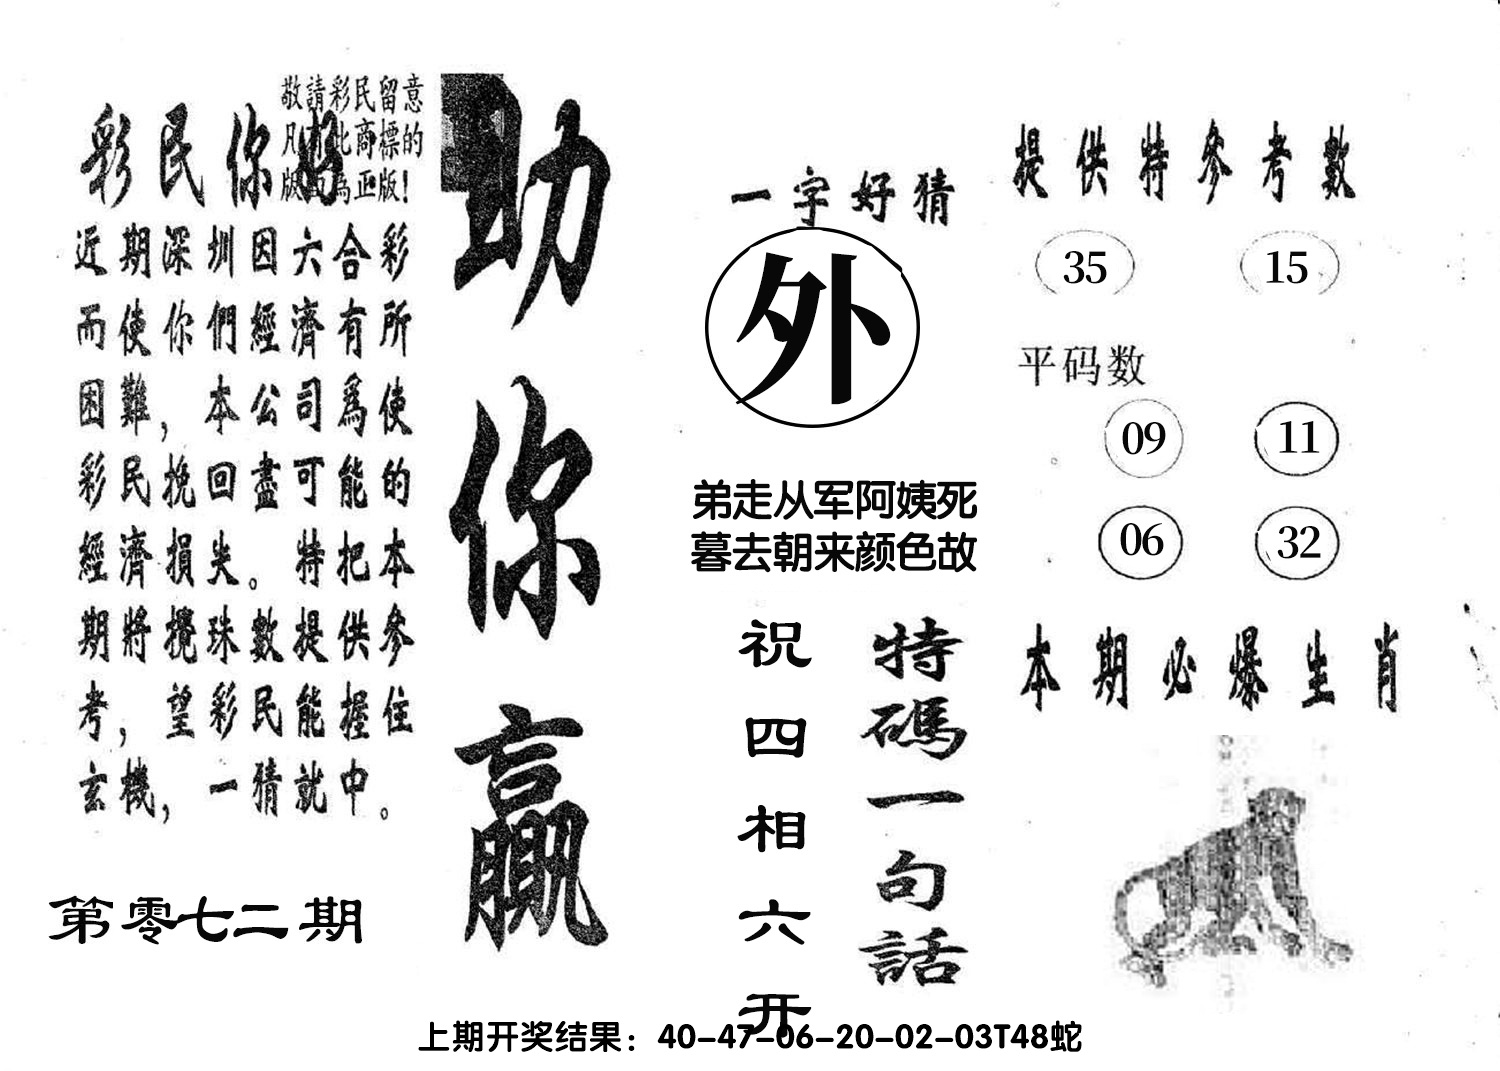 敬請彩民留意
凡有此商標的
版面為正版!
彩民你好
近期深圳因六合彩
而使你們經濟有所
困難，本公司爲使
彩民挽回盡可能的
經濟損失。特把本
期將攪珠數提供參
考，望彩民能握住
玄機，一猜就中。
第零七二期
助你贏
一字好猜
外
弟走从军阿姨死
暮去朝来颜色故
特碼一句話
祝四相六开
提供特參考數
35 15
平码数
09 11
06 32
本期必爆生肖
上期开奖结果：40-47-06-20-02-03T48蛇